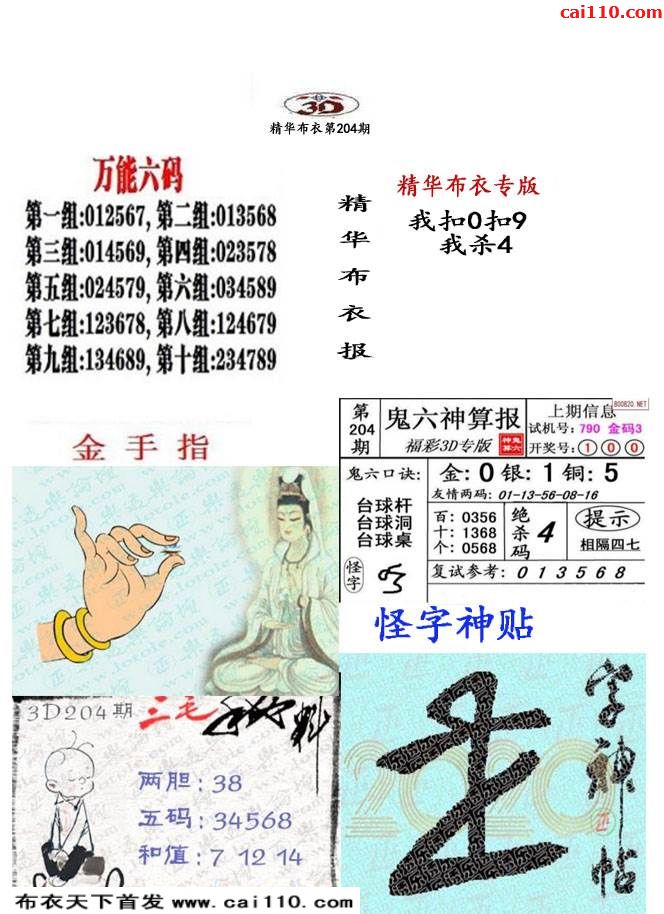 cai110.com
3D
精华布衣第204期
万能六码
第一组:012567, 第二组:013568
第三组:014569, 第四组:023578
第五组:024579, 第六组:034589
第七组:123678, 第八组:124679
第九组:134689, 第十组:234789
精华布衣报
精华布衣专版
我扣0扣9
我杀4
金手指
第204期
鬼六神算报
福彩3D专版
神鬼算六
上期信息
800820.NET
试机号: 790 金码3
开奖号: 1 0 0
鬼六口诀:
台球杆
台球洞
台球桌
怪字
金: 0 银: 1 铜: 5
友情两码: 01-13-56-08-16
百: 0356
十: 1368
个: 0568
绝杀码 4
提示
相隔四七
复试参考: 0 1 3 5 6 8
怪字神贴
3D204期
三毛
两胆: 38
五码: 34568
和值: 7 12 14
字神帖
2020
布衣天下首发 www.cai110.com